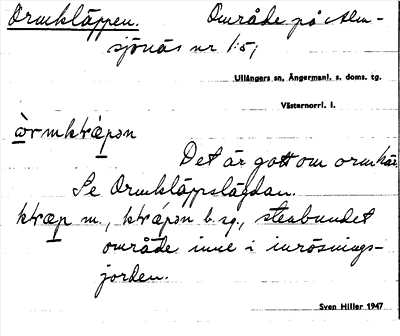 Ormkläppen. Område på Alm-
sjönäs nr 1:5;
Ullångers sn, Ångermanl. s. doms. tg.
Västernorrl. l.
Det är gott om orm här.
Se Ormkläppslägdan.
m., b. sg., stenbundet
område inne i inrösnings-
jorden.
Sven Hiller 1947